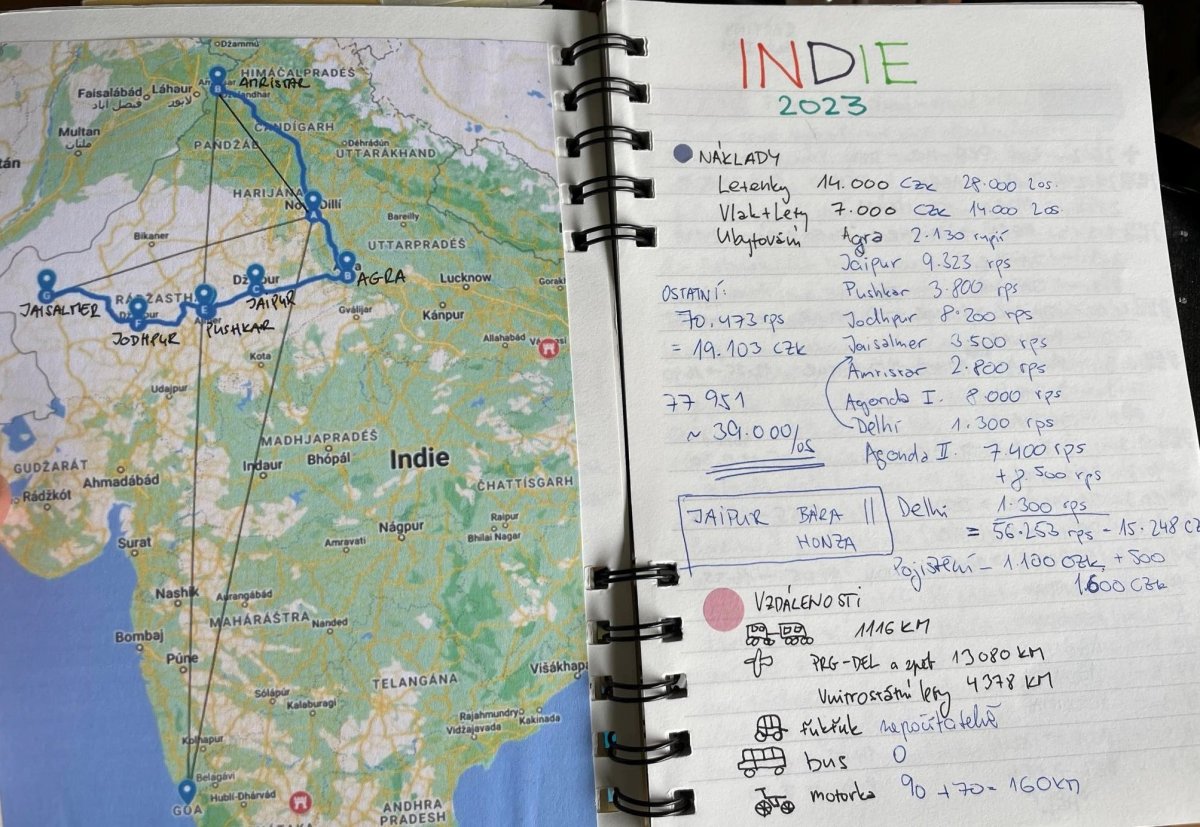 Džammú
HIMÁČALPRADÉŠ
AMRISTAR
Faisalábád
Láhaur
فيصل آباد
لاہور
ČANDÍGARH
Multan
ملتان
PANDŽÁB
Déhrádún
UTTARÁKHAND
HARIJÁNA
Dillí
Bareilly
Bikaner
UTTARPRADÉŠ
AGRA
Lucknow
JAISALMER
JAIPUR
JODHPUR
PUSHKAR
Gválijar
Kánpur
Allahabád
Kota
Udajpur
MADHJAPRADÉŠ
Indaur
Bhópál
Indie
GUDŽARÁT
Ahmadábád
Rádžkót
ČHATTÍSGARH
Raipur
Bhilai Nagar
Nágpur
Amravati
Surat
Nashik
Aurangábád
MAHÁRÁŠTRA
Nanded
Bombaj
Púne
Sólápur
Kalaburagi
TELANGÁNA
Višákhap
Rajahmundry
Kakinada
Vidžajavada
Kolhapur
Belagávi
GOA
Hublí-Dhárvád
ANDHRA
PRADEŠH
INDIE
2023
NÁKLADY
Letenky 14.000 CZK 28.000 2os.
Vlak+Lety 7.000 CZK 14.000 2os.
Ubytování Agra 2.130 rupií
Jaipur 9.323 rps
Pushkar 3.800 rps
Jodhpur 8.200 rps
Jaisalmer 3.500 rps
Amristar 2.800 rps
Agonda I. 8.000 rps
Delhi 1.300 rps
Agonda II. 7.400 rps
+8.500 rps
Delhi 1.300 rps
= 56.253 rps - 15.248 CZ
Pojištění - 1.100 CZK + 500
1.600 CZK
OSTATNÍ:
70.473 rps
= 19.103 CZK
77 951
~ 39.000/os
JAIPUR BÁRA ||
HONZA
VZDÁLENOSTI
1116 KM
PRG-DEL a zpět 13080 KM
Vnitrostátní lety 4378 KM
ťukťuk nepočítatelně
bus 0
motorka 90 + 70 = 160 KM